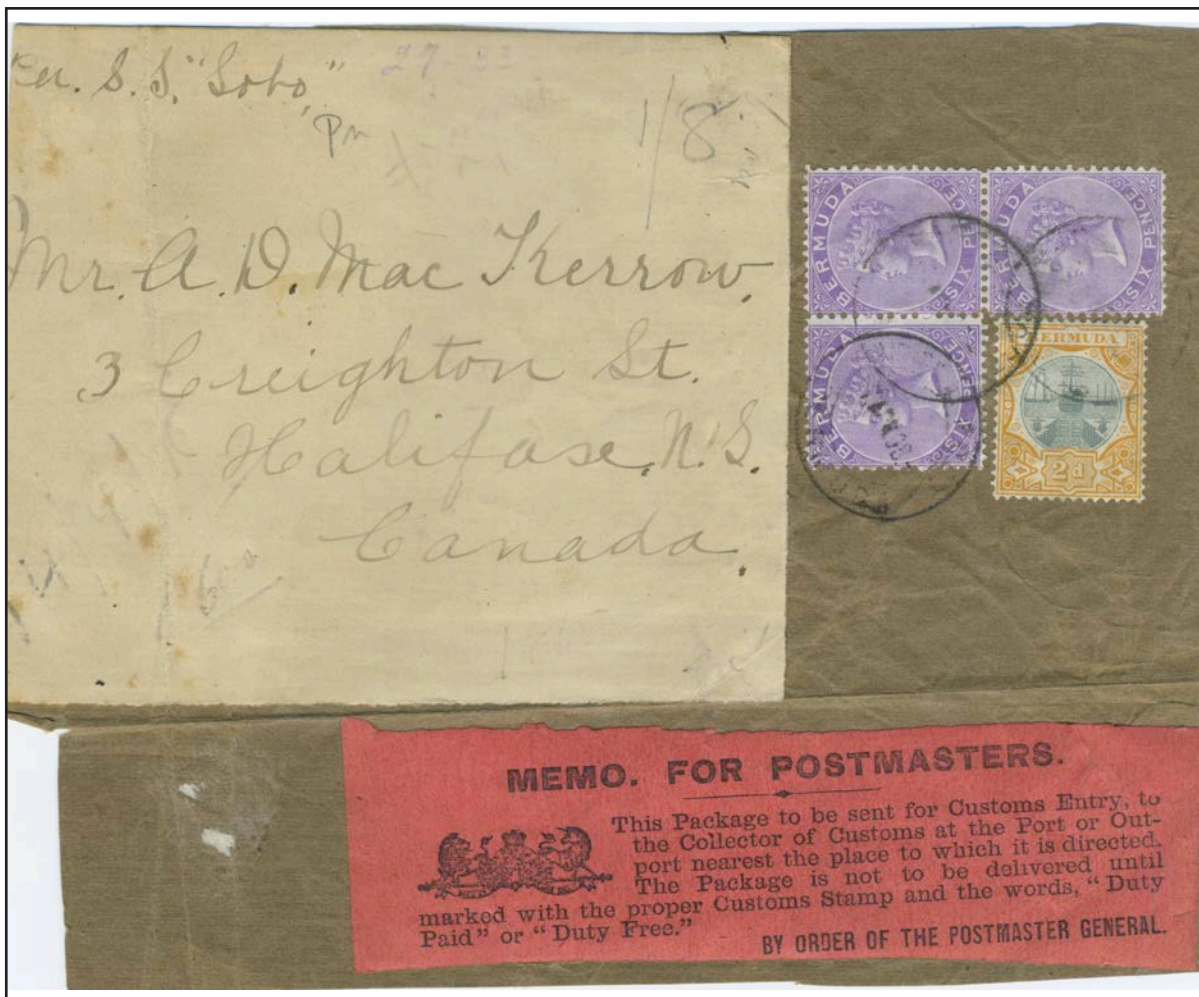 Per. S. S. "Sobo"
27-33
1/8
Mr. A. D. Mac Kerrow,
3 Creighton St.
Halifax, N.S.
Canada.
BERMUDA
SIX PENCE
BERMUDA
SIX PENCE
BERMUDA
SIX PENCE
BERMUDA
2d
MEMO. FOR POSTMASTERS.
This Package to be sent for Customs Entry, to
the Collector of Customs at the Port or Out-
port nearest the place to which it is directed.
The Package is not to be delivered until
marked with the proper Customs Stamp and the words, "Duty
Paid" or "Duty Free."
BY ORDER OF THE POSTMASTER GENERAL.